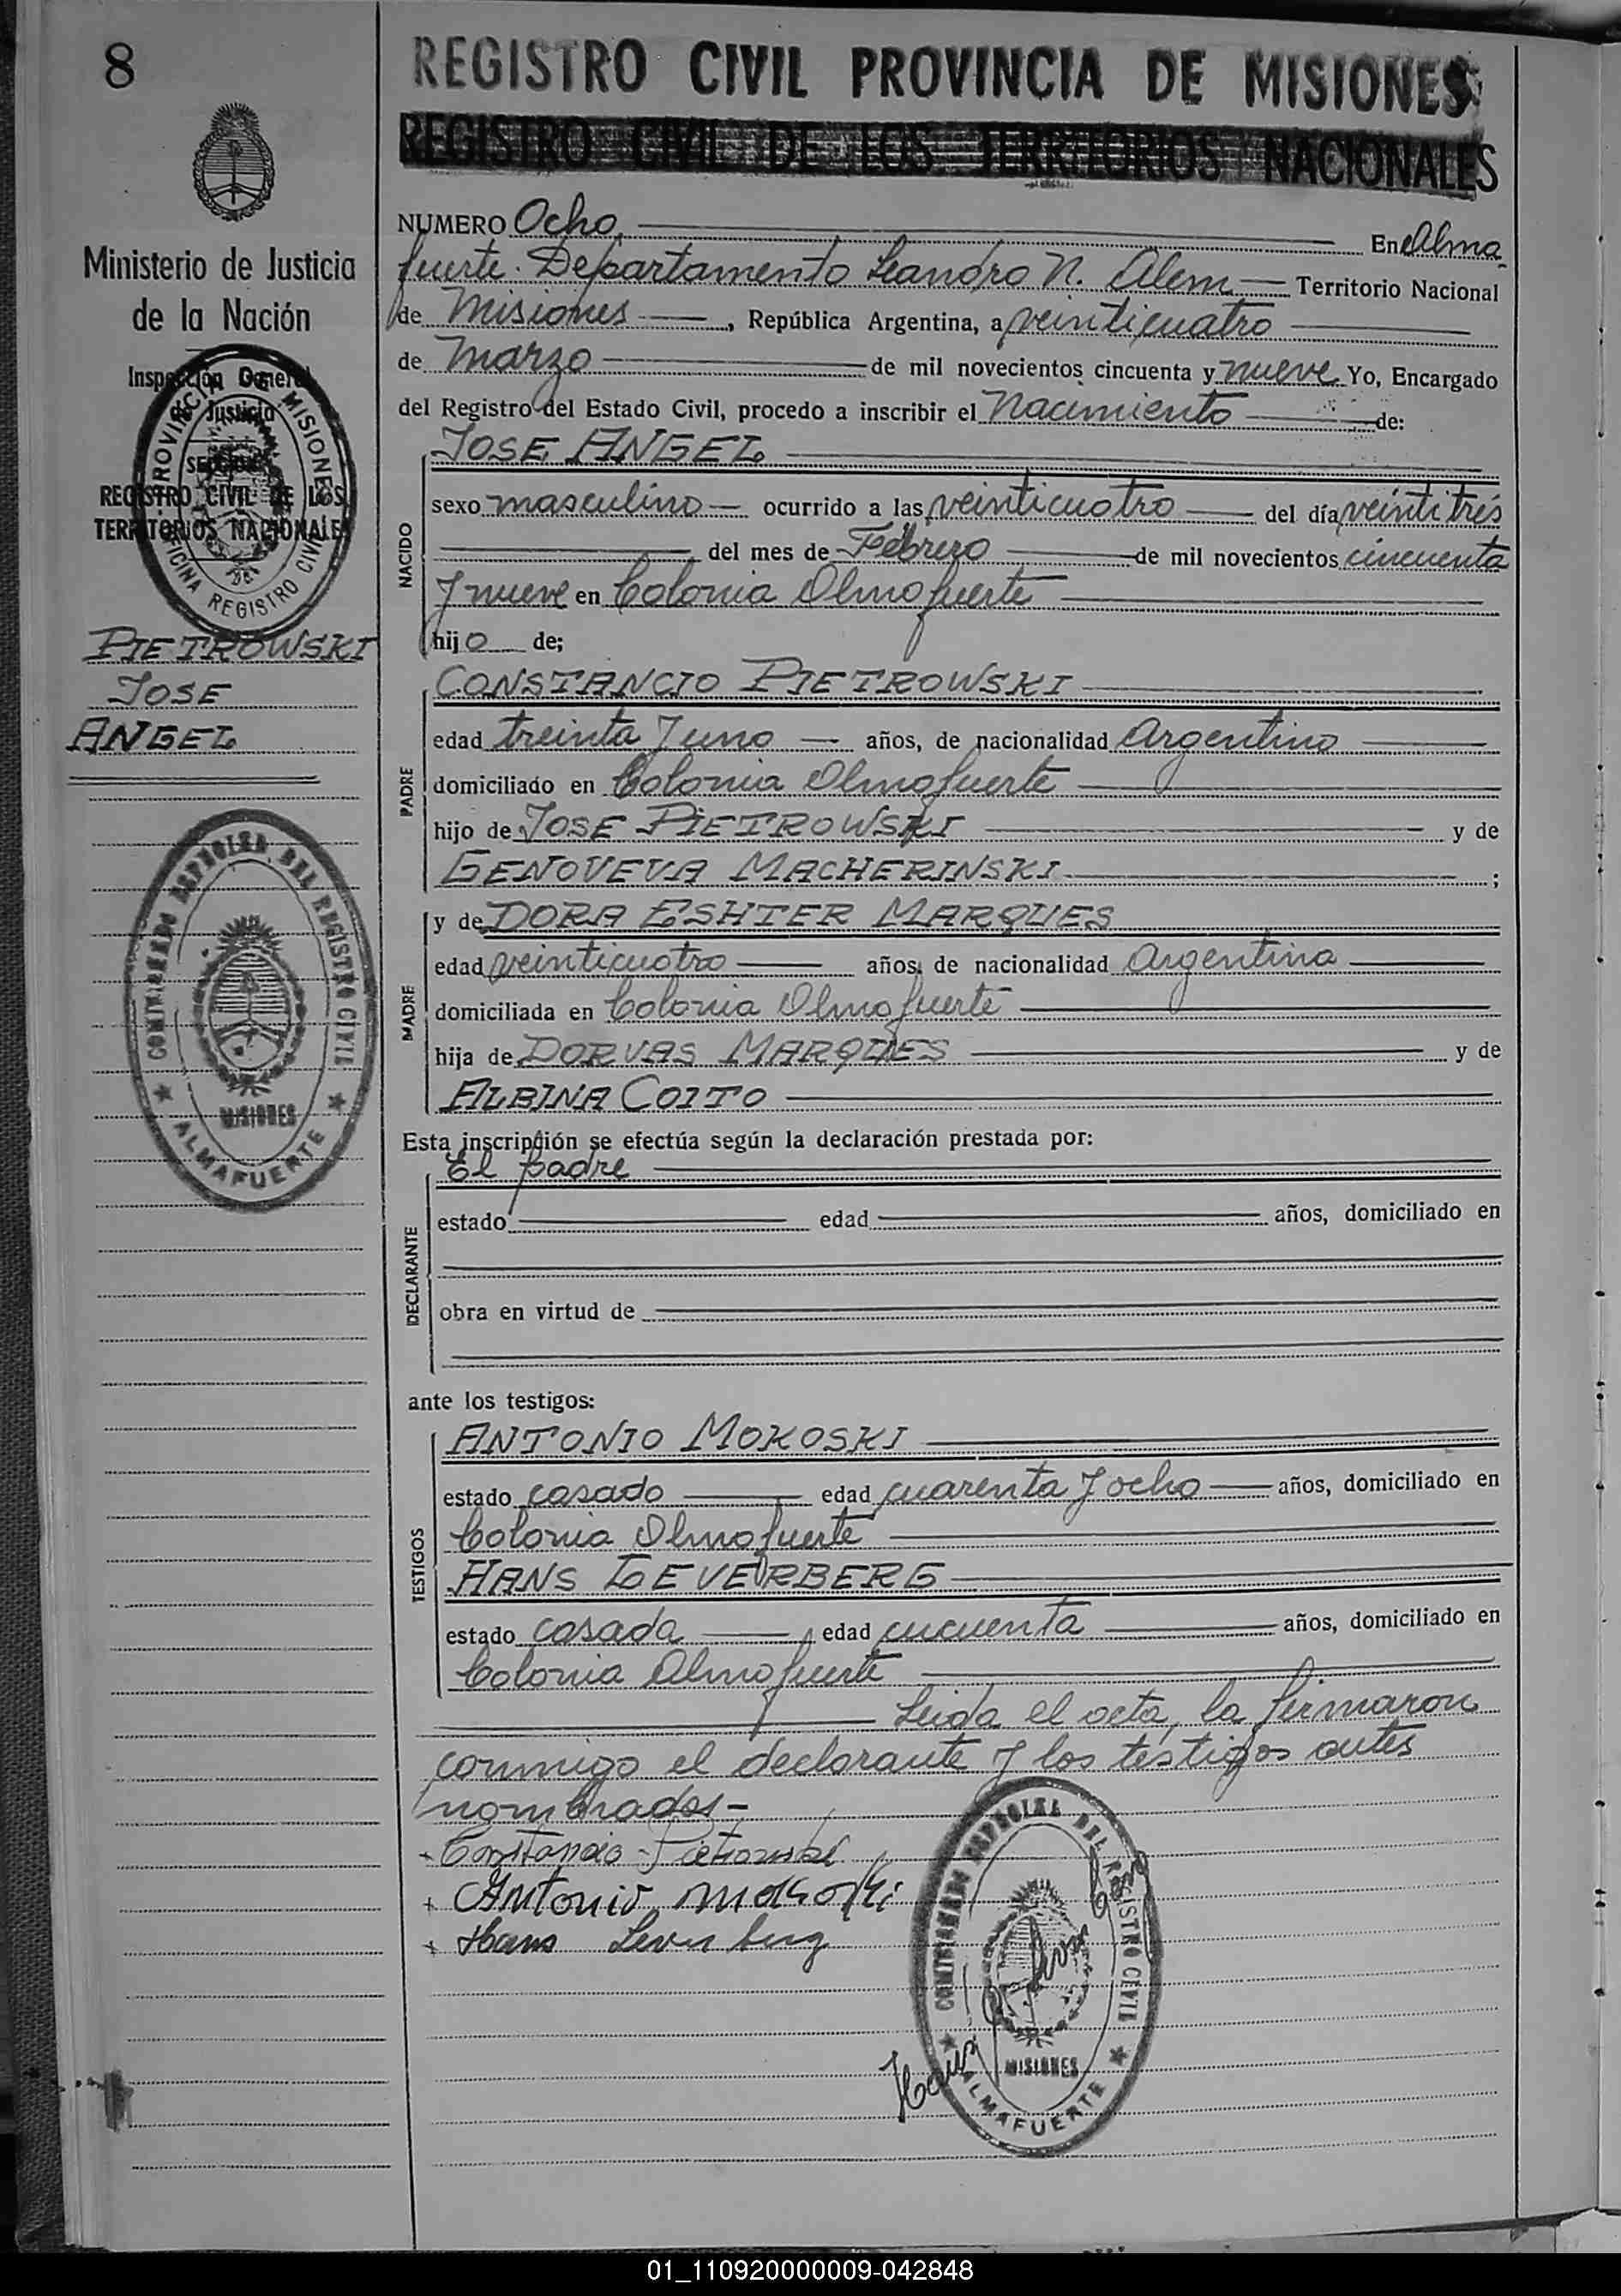 8
REGISTRO CIVIL PROVINCIA DE MISIONES
REGISTRO CIVIL DE LOS TERRITORIOS NACIONALES
Ministerio de Justicia
de la Nación
Inspección General
de Justicia
SECCION
REGISTRO CIVIL DE LOS
TERRITORIOS NACIONALES
PROVINCIA DE MISIONES
OFICINA REGISTRO CIVIL
PIETROWSKI
JOSE
ANGEL
COMISIONADO ESPECIAL DEL REGISTRO CIVIL
MISIONES
ALMAFUERTE
NUMERO Ocho, En Alma
fuerte. Departamento Leandro N. Alem Territorio Nacional
de Misiones, República Argentina, a veinticuatro
de marzo de mil novecientos cincuenta y nueve Yo, Encargado
del Registro del Estado Civil, procedo a inscribir el Nacimiento de:
JOSE ANGEL
NACIDO
sexo masculino ocurrido a las veinticuatro del día veintitrés
del mes de Febrero de mil novecientos cincuenta
y nueve en Colonia Almafuerte
hijo de;
CONSTANCIO PIETROWSKI
PADRE
edad treinta y uno años, de nacionalidad Argentino
domiciliado en Colonia Almafuerte
hijo de JOSE PIETROWSKI y de
GENOVEVA MACHERINSKI;
y de DORA ESHTER MARQUES
MADRE
edad veinticuatro años, de nacionalidad Argentina
domiciliada en Colonia Almafuerte
hija de DORVAS MARQUES y de
ALBINA COITO
Esta inscripción se efectúa según la declaración prestada por:
El padre
DECLARANTE
estado edad años, domiciliado en
obra en virtud de
ante los testigos:
ANTONIO MOKOSKI
TESTIGOS
estado casado edad cuarenta y ocho años, domiciliado en
Colonia Almafuerte
HANS LEVERBERG
estado casada edad cucuenta años, domiciliado en
Colonia Almafuerte
Leida el acta, la firmaron
conmigo el declarante y los testigos antes
nombrados-
+ Constancio Pietrowski
+ Antonio Mokoski
+ Hans Leverberg
COMISIONADO ESPECIAL DEL REGISTRO CIVIL
MISIONES
ALMAFUERTE
01_110920000009-042848